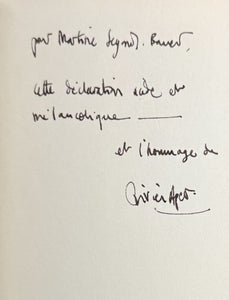 pour Martine Segon. Bauer,
cette déclaration acide et
mélancolique —
et l'hommage de
Olivier Apert